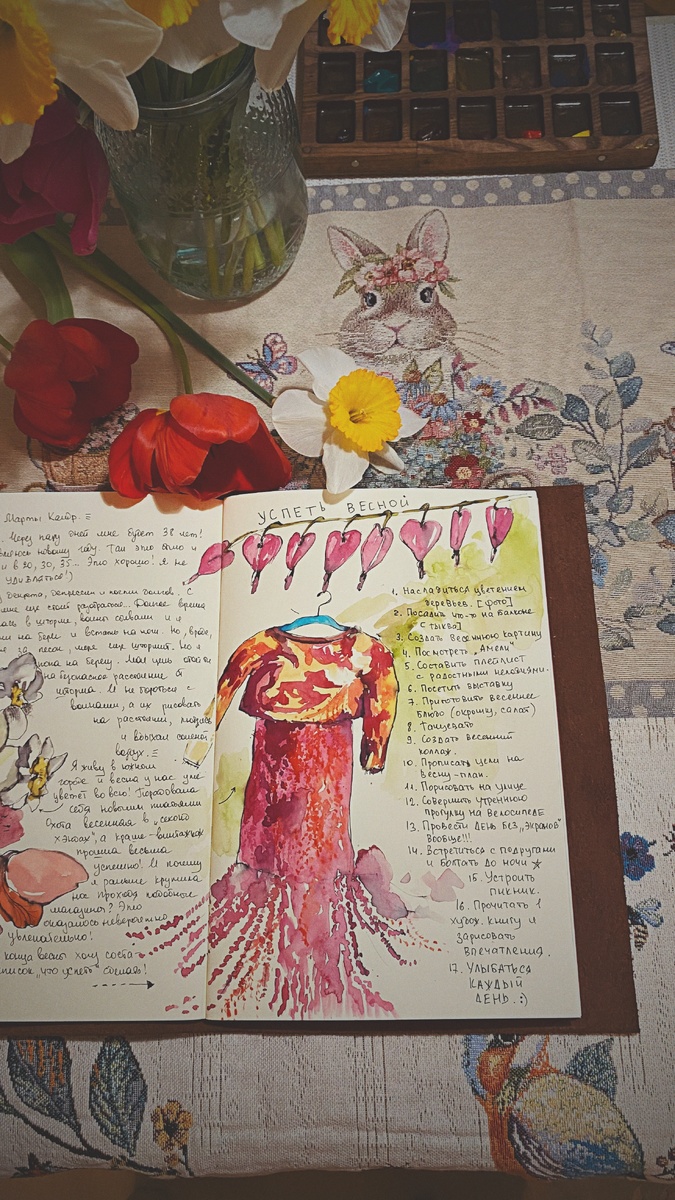 Марты Кетр.
Через пару дней мне будет 38 лет!
новому году. Так это было и
и в 20, 30, 35... Это хорошо! Я не
декрета, депрессии и
мне ещё своей разобраться. Долгое время
в шторме, волны сбивали и я
на берег и встать на ног. Но, вроде,
песок, море ещё штормит. Но я
на берегу. Моя цель стоять
на безопасное расстояние от
шторма. И не бороться с
волнами, а их рисовать
на расстоянии, любуясь
и вдыхая солёный
воздух.
Я живу в южном
городе и весна у нас уже
цветёт во всю! Порадовала
себя новыми платьями
Охота весенняя в „секонд
хэндах", а краше - винтажках
прошла весьма
успешно! И почему
я раньше
нос проходя подобные
магазины? Это
оказалось невероятно
увлекательно!
конца весны хочу соста-
список „что успеть" сделаю!
УСПЕТЬ ВЕСНОЙ
1. Насладиться цветением
деревьев. [фото]
2. Посадить что-то на балконе
[тыква]
3. Создать весеннюю картину
4. Посмотреть „Амели"
5. Составить плейлист
с радостными мелодиями.
6. Посетить выставку
7. Приготовить весеннее
блюдо (окрошку, салат)
8. Танцевать
9. Создать весенний
коллаж.
10. Прописать цели на
весну-план.
11. Порисовать на улице
12. Совершить утреннюю
прогулку на велосипеде
13. Провести день без „экранов"
вообще!!!
14. Встретиться с подругами
и болтать до ночи ☆
15. Устроить
пикник.
16. Прочитать 1
худож. книгу и
зарисовать
впечатления.
17. Улыбаться
каждый
день. :)